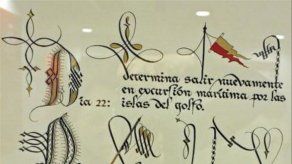 determina salir nuevamente
en excursión marítima por las
Dia 22: islas del golfo.